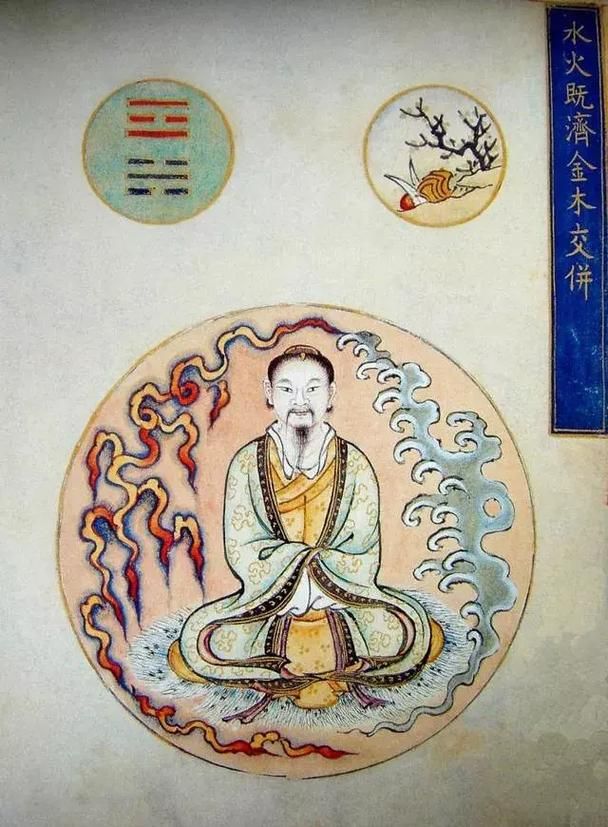 水火既濟金木交併